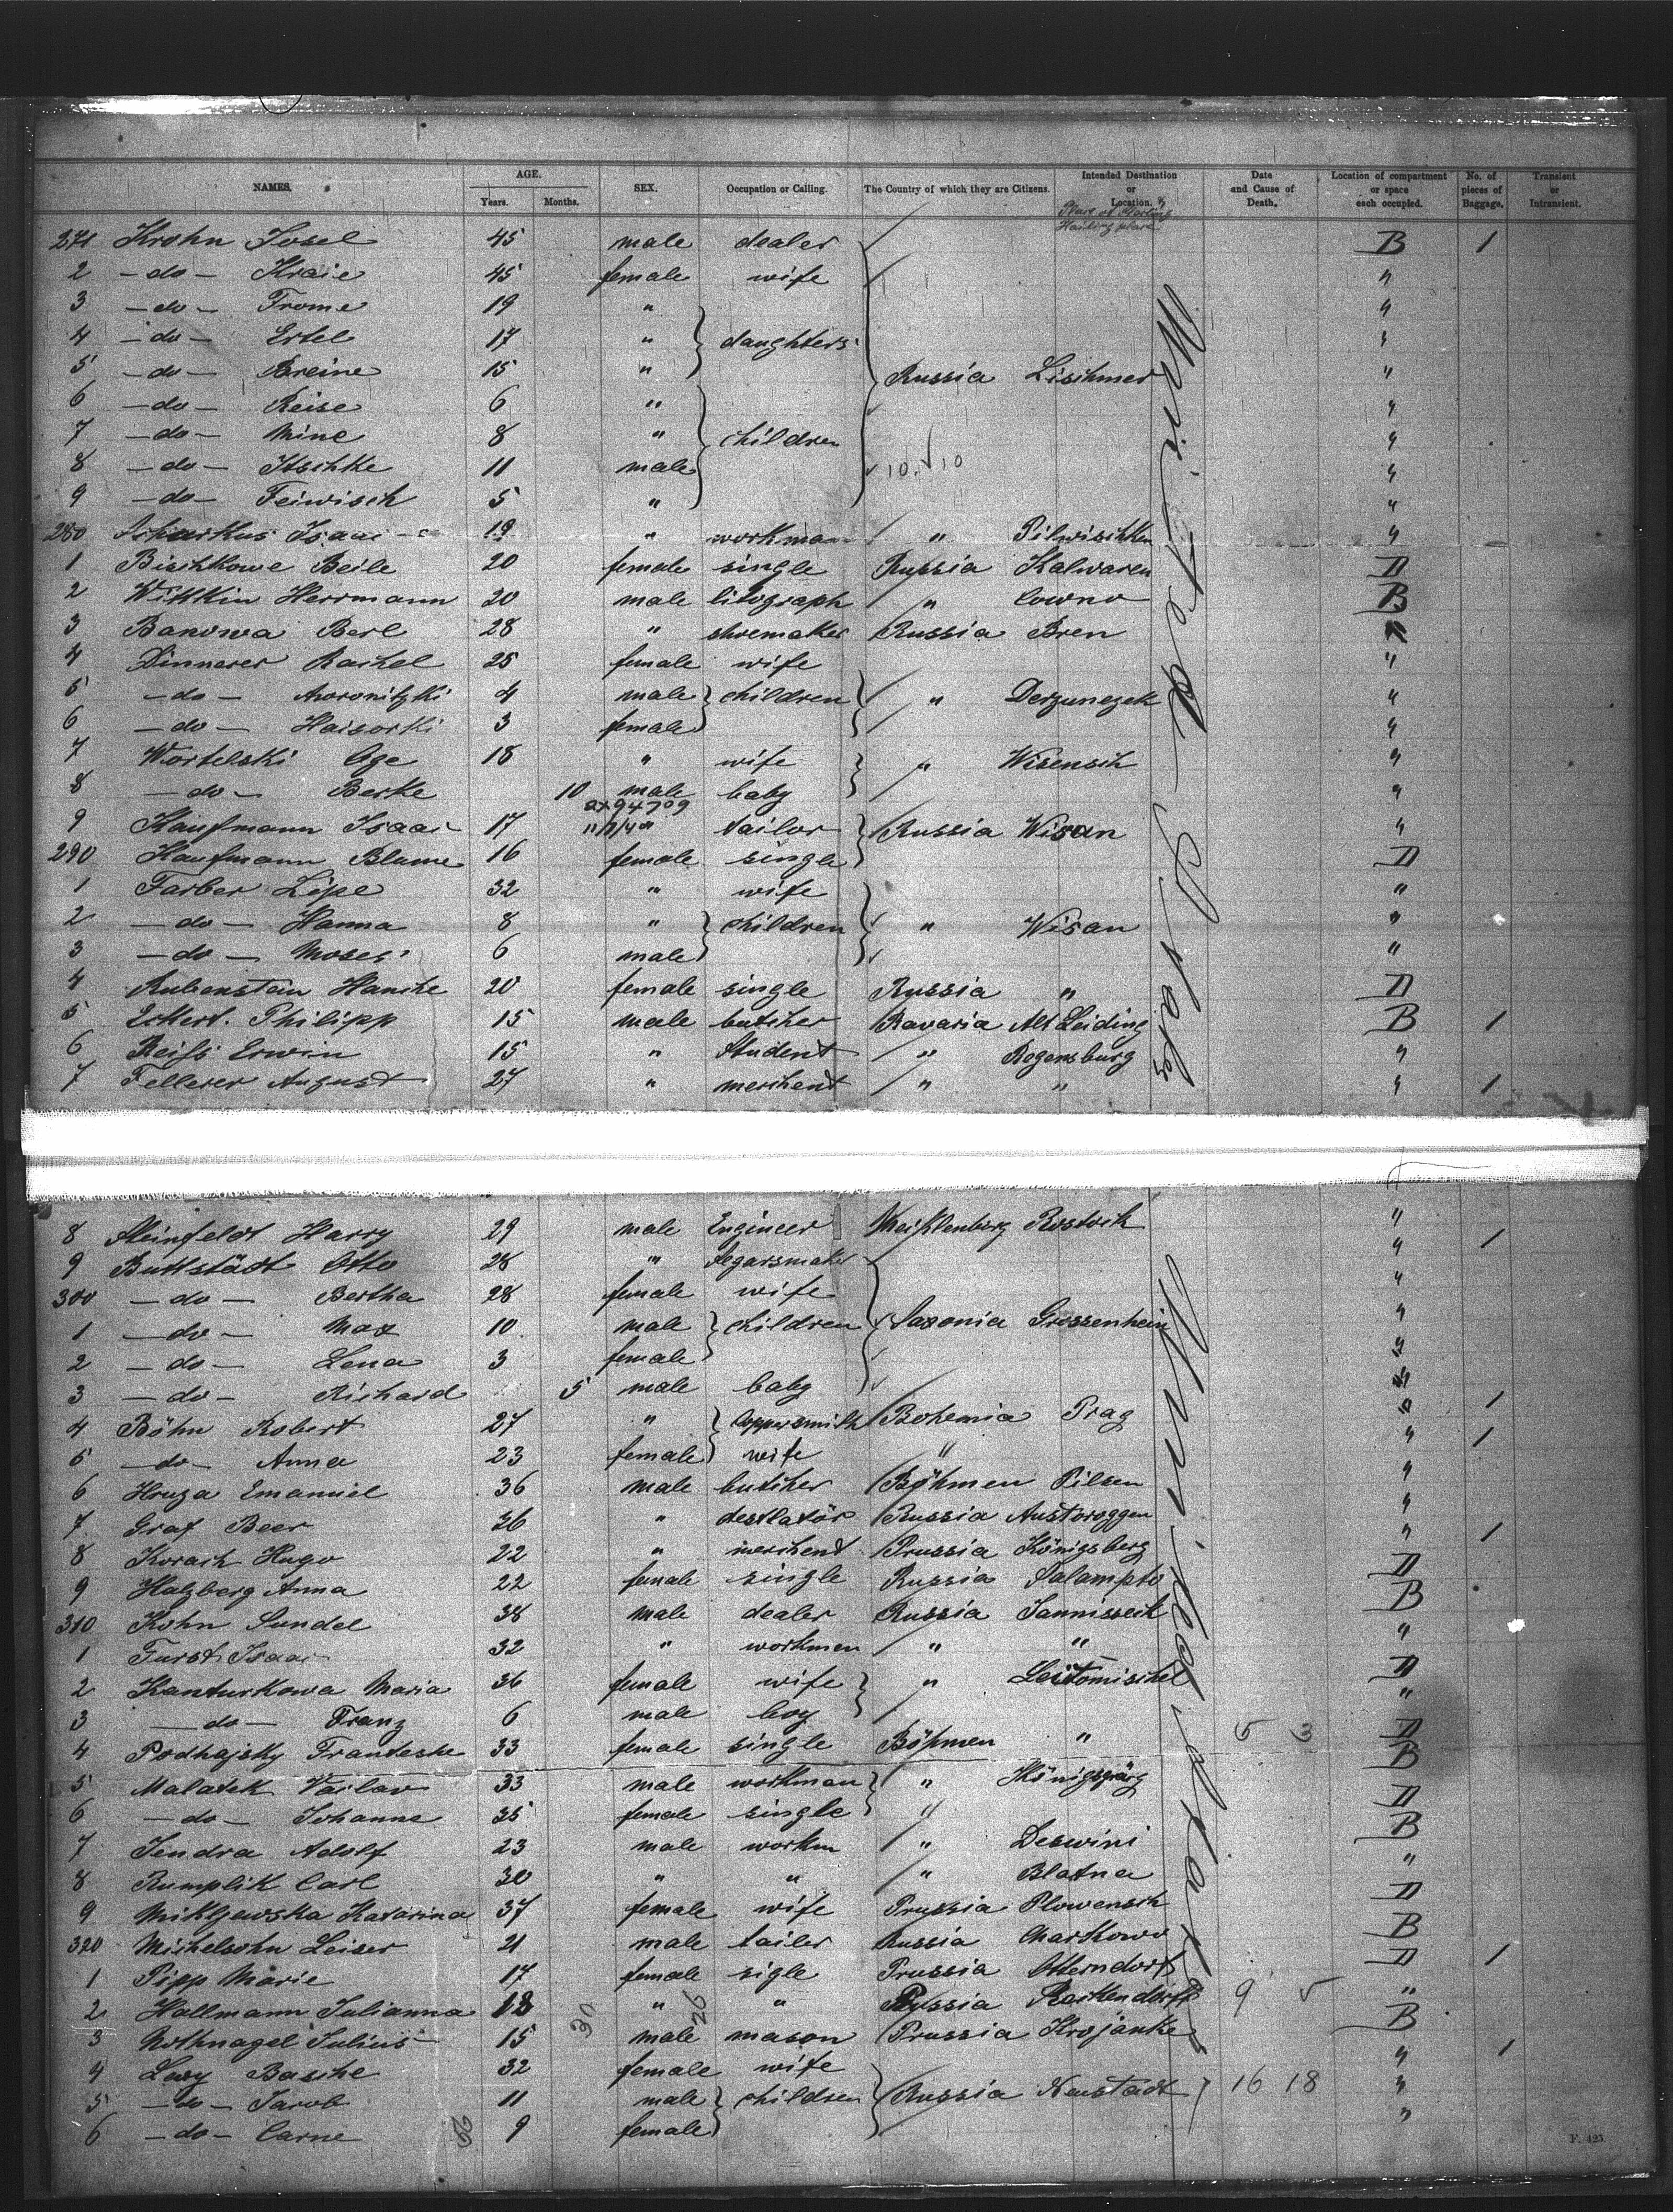 NAMES. AGE. SEX. Occupation or Calling. The Country of which they are Citizens. Intended Destination or Location. Date and Cause of Death. Location of compartment or space each occupied. No. of pieces of Baggage. Transient or Intransient.
Years. Months.
271 Krohn Josel 45 male dealer B 1
2 -do- Kraie 45 female wife "
3 -do- Frome 19 " "
4 -do- Ertel 17 " daughters "
5 -do- Breine 15 " Russia Lischmer "
6 -do- Reise 6 " "
7 -do- Mine 8 " children "
8 -do- Itschke 11 male 10 10 "
9 -do- Feiwisch 5 " "
280 Scharkus Isaac 19 " workman " Pilwischken "
1 Bischkowe Beile 20 female single Russia Kalwaren D
2 Wittkin Herrmann 20 male litograph " Cowno B
3 Banowa Berl 28 " shoemaker Russia Bren "
4 Dinnerer Rachel 25 female wife "
5 -do- Aworonitzki 4 male children " Derzunezek "
6 -do- Haisorki 3 female "
7 Wortelski Age 18 " wife " Wisensch "
8 -do- Berke 10 male baby "
2x94709
9 Kaufmann Isaac 17 11/7/4 " tailor Russia Wisan "
290 Kaufmann Blume 16 female single D
1 Farber Lipe 32 " wife "
2 -do- Hanna 8 " children " Wisan "
3 -do- Moses 6 male "
4 Rubenstein Hanche 20 female single Russia " D
5 Eckert. Philipp 15 male butcher Bavaria Alt Leiding B 1
6 Reiss Erwin 15 " Student " Regensburg "
7 Fellerer August 27 " merchent " " " 1
8 Steinfeldt Harry 29 male Engineer Meihlenberg Rostock "
9 Buttstädt Otto 28 " segarsmaker " 1
300 -do- Bertha 28 female wife "
1 -do- Max 10 male children Saxonia Grossenhein "
2 -do- Lena 3 female "
3 -do- Richard 5 male baby "
4 Böhn Robert 27 " Coppersmith Bohemia Prag " 1
5 -do- Anna 23 female wife " " 1
6 Hruza Emanuel 36 male butcher Böhmen Pilsen "
7 Graf Beer 36 " destlatör Russia Austoroggen "
8 Korach Hugo 22 " merchent Prussia Königsberg " 1
9 Holzberg Anna 22 female single Russia Salampto D
310 Kohn Sundel 38 male dealer Russia Jannisseik B
1 Furst Isaac 32 " workmen " " "
2 Kanturkowa Maria 36 female wife " Leitomischel D
3 -do- Franz 6 male boy "
4 Podhajsky Franteshe 33 female single Böhmen " 5 3 D
5 Malatek Vaclav 33 male workman " Königsgräz B
6 -do- Johanne 35 female single " D
7 Jendra Adolf 23 male workm " Deswini B
8 Rumplik Carl 30 " " " Blatna "
9 Miktjewska Katarina 37 female wife Prussia Plowensch D
320 Michelsohn Leiser 21 male tailer Russia Charkowo B
1 Pipp Marie 17 female sigle Prussia Otterndorf D 1
2 Hallmann Julianna 18 " " Prussia Rackendorff 9 5 "
3 Nothnagel Julius 15 male mason Prussia Krojanke B
4 Levy Basche 32 female wife " 1
5 -do- Jacob 11 male children Russia Neustadt 16 18 "
6 -do- Carne 9 female "
30
26
F. 425.